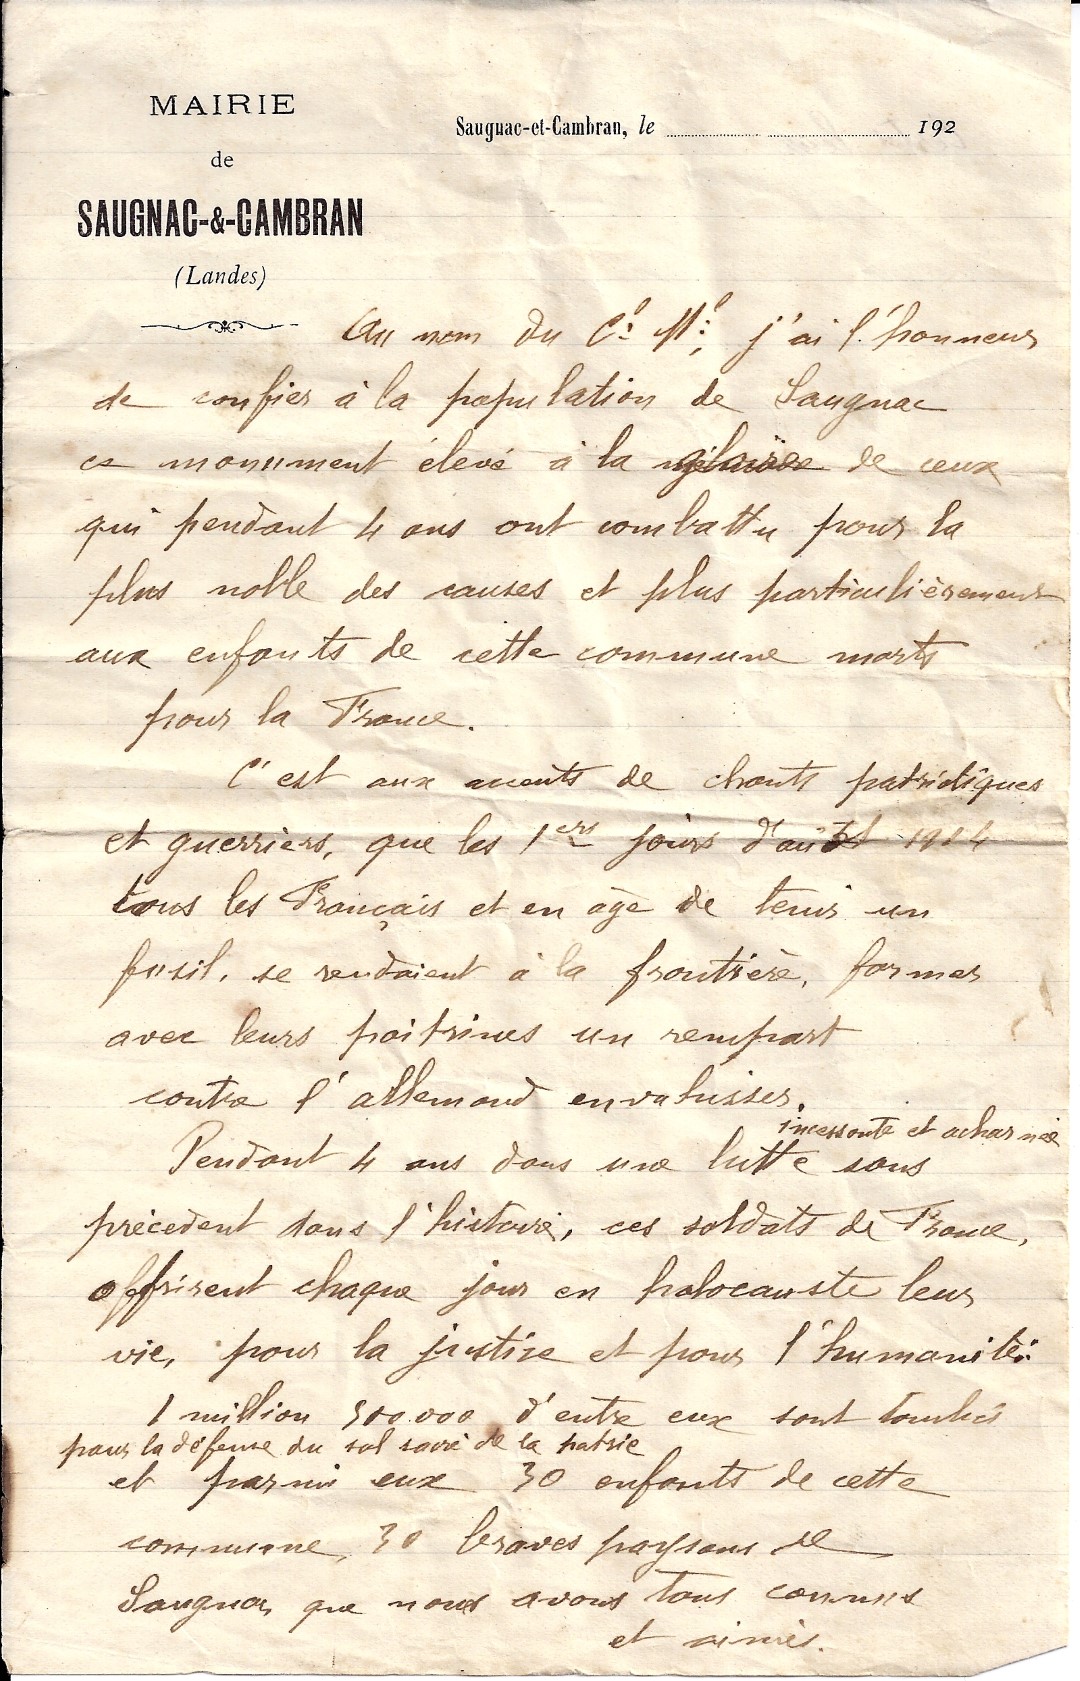 MAIRIE
de
SAUGNAC-&-CAMBRAN
(Landes)
Saugnac-et-Cambran, le 192
Au nom du Cl Ml, j'ai l'honneur
de confier à la population de Saugnac
ce monument élevé à la gloire de ceux
qui pendant 4 ans ont combattu pour la
plus noble des causes et plus particulièrement
aux enfants de cette commune morts
pour la France.
C'est aux accents de chants patriotiques
et guerriers, que les 1ers jours d'août 1914
tous les Français et en âge de tenir un
fusil, se rendaient à la frontière, former
avec leurs poitrines un rempart
contre l'allemand envahisser.
incessante et acharnée
Pendant 4 ans dans une lutte sans
précédent dans l'histoire, ces soldats de France,
offrirent chaque jour en holocauste leur
vie, pour la justice et pour l'humanité.
1 million 500.000 d'entre eux sont tombés
pour la défense du sol sacré de la patrie
et parmi eux 30 enfants de cette
commune, 30 braves paysans de
Saugnac que nous avons tous connus
et aimés.